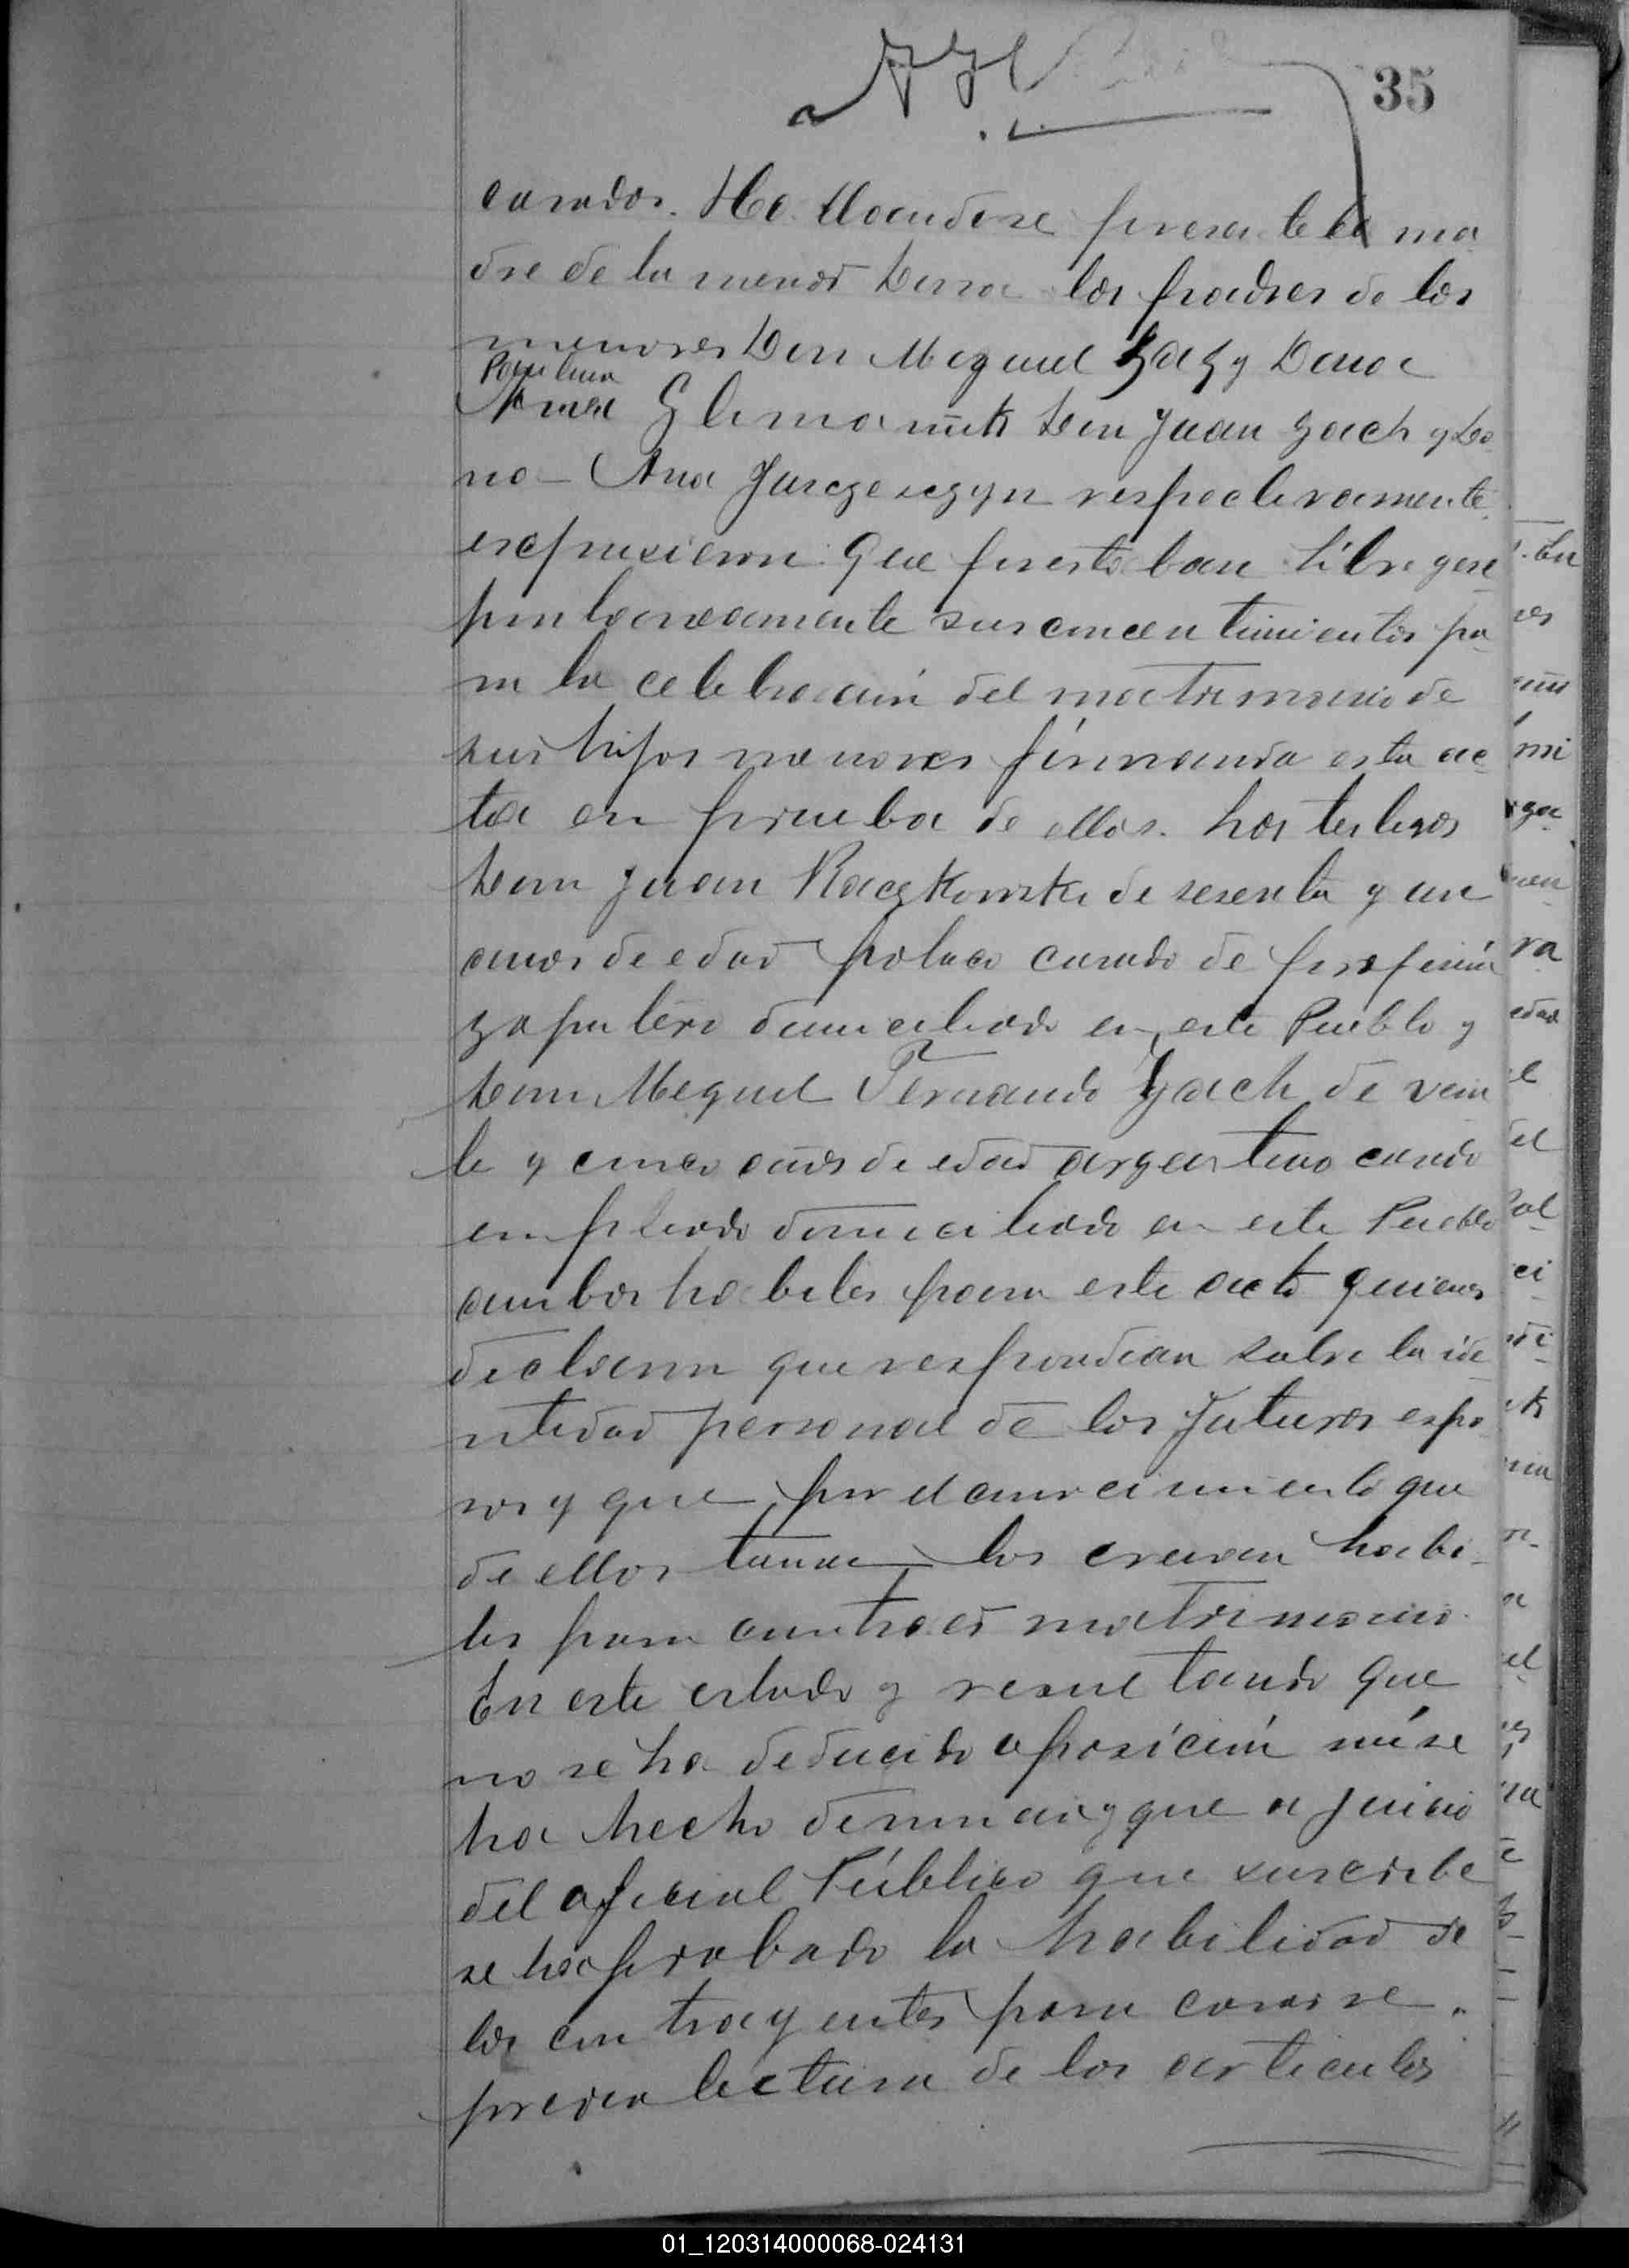 35
casados. Hallandose presente la ma
dre de la menor Dona los padres de los
menores Don Miguel Gaz y Dona
Paulina
Glimaniuk Don Juan Gach y Do
na - Ana Jurczeszyn respectivamente
expusieron: Que prestaban libre y es
pontaneamente sus concentimientos pa
ra la celebración del matrimonio de
sus hijos menores firmando esta ac
ta en prueba de ellos. Los testigos
Don Juan Raczkowski de sesenta y un
anos de edad polaco casado de profesión
zapatero domiciliado en este Pueblo y
Don Miguel Fernando Gach de vein
te y cinco años de edad argentino casado
empleado domiciliado en este Pueblo
ambos habiles para este acto quienes
declararon que respondian sobre la ide
ntidad personal de los futuros espo
sos y que por el conocimiento que
de ellos tenian los creian habi-
les para contraer matrimonio.
En este estado y resultando que
no se ha deducido oposición ni se
ha hecho denuncia y que a juicio
del oficial Público que suscribe
se ha probado la habilidad de
los contrayentes para casarse.
previa lectura de los articulos
01_120314000068-024131